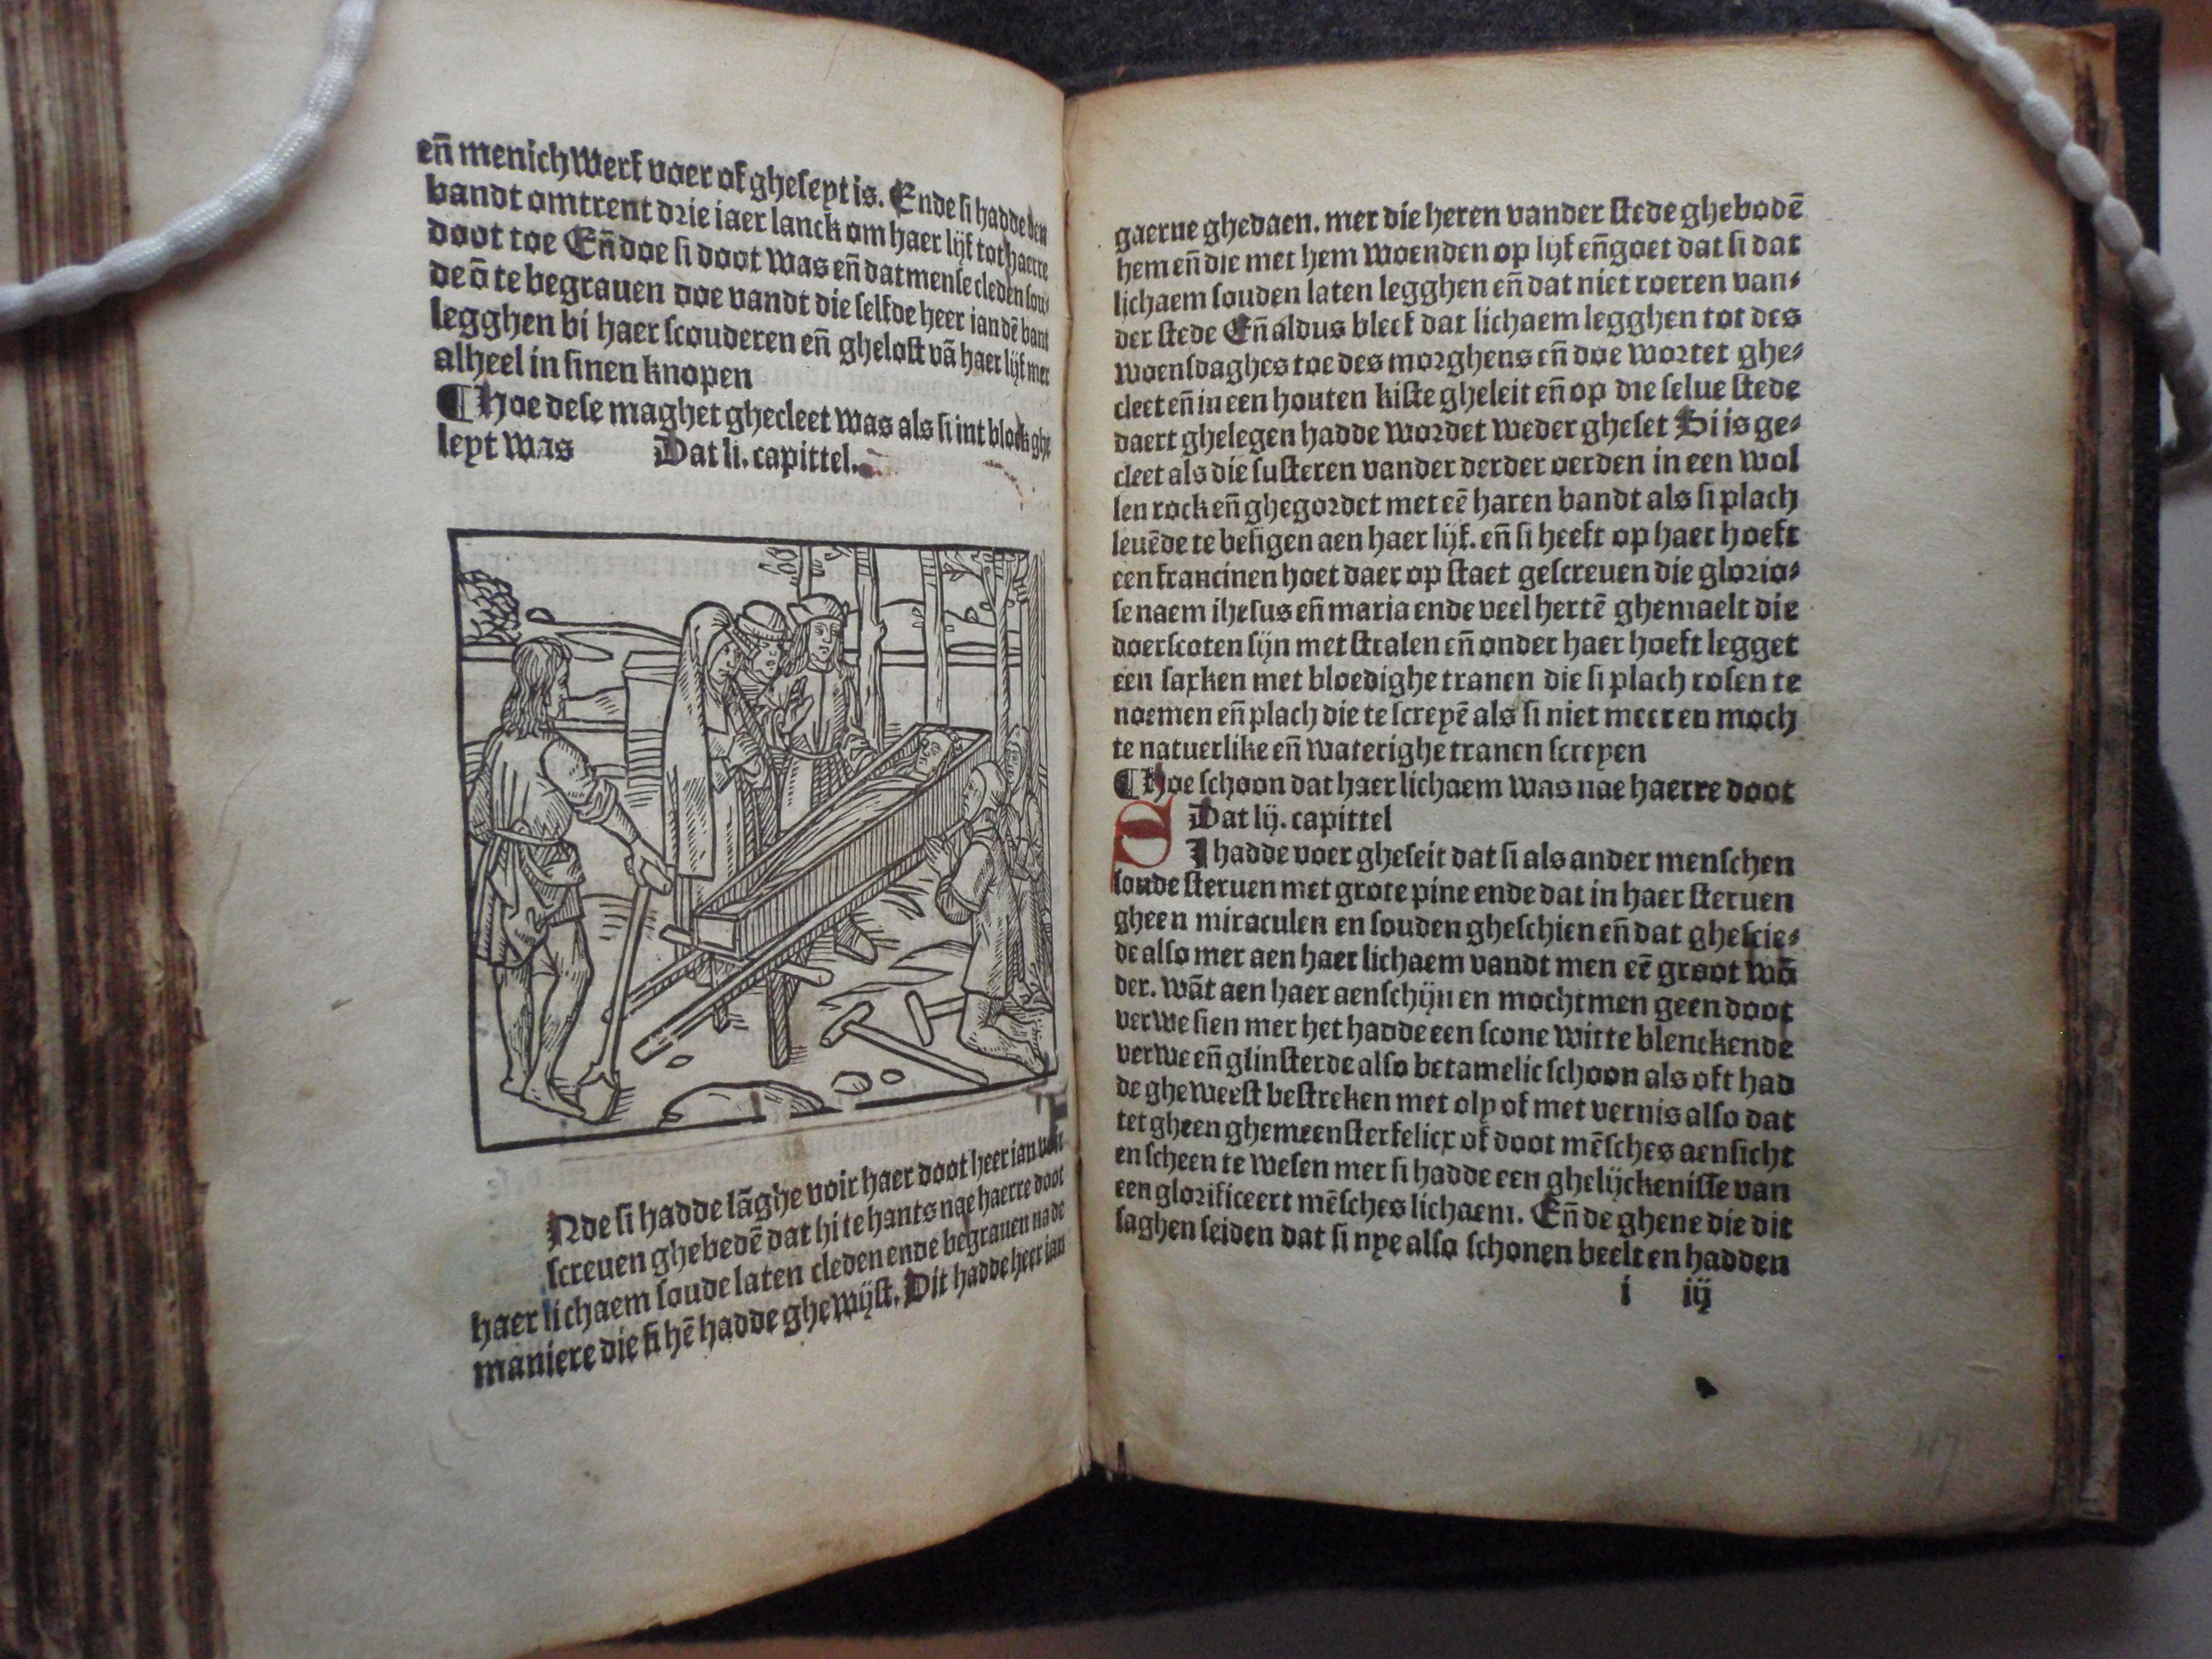 en̄ menich werf voer of gheseyt is. Ende si hadde den
bandt omtrent drie iaer lanck om haer lijf tot haerre
doot toe En̄ doe si doot was en̄ datmense cleden sou⸗
de ō te begrauen doe vandt die selfde heer ian dē bant
legghen bi haer scouderen en̄ ghelost vā haer lijf mer
alheel in sinen knopen
¶ Hoe dese maghet ghecleet was als si int block ghe
leyt was Dat li. capittel.
Nde si hadde lāghe voir haer doot heer ian voir
screuen ghebedē dat hi tehants nae haerre doot
haer lichaem soude laten cleden ende begrauen na de
maniere die si hē hadde ghewijst. Dit hadde heer ian
gaerne ghedaen. mer die heren vander stede ghebodē
hem en̄ die met hem woenden op lijf en̄ goet dat si dat
lichaem souden laten legghen en̄ dat niet roeren van⸗
der stede En̄ aldus bleef dat lichaem legghen tot des
woensdaghes toe des morghens en̄ doe wortet ghe⸗
cleet en̄ in een houten kiste gheleit en̄ op die selue stede
daert ghelegen hadde wordet weder gheset Si is ge⸗
cleet als die susteren vander derder oerden in een wol
len rock en̄ ghegordet met eē haren bandt als si plach
leuēde te besigen aen haer lijf. en̄ si heeft op haer hoeft
een francinen hoet daer op staet gescreuen die glorio⸗
se naem ihesus en̄ maria ende veel hertē ghemaelt die
doerscoten sijn met stralen en̄ onder haer hoeft legget
een saxken met bloedighe tranen die si plach rosen te
noemen en̄ plach die te screyē als si niet meer en moch
te natuerlike en̄ waterighe tranen screyen
¶ Hoe schoon dat haer lichaem was nae haerre doot
Dat lij. capittel
SI hadde voer gheseit dat si als ander menschen
soude steruen met grote pine ende dat in haer steruen
gheen miraculen en souden gheschien en̄ dat ghescie⸗
de also mer aen haer lichaem vandt men eē groot wō
der. wāt aen haer aenschijn en mocht men geen doot
verwe sien mer het hadde een scone witte blenckende
verwe en̄ glinsterde also betamelic schoon als oft had
de gheweest bestreken met oly of met vernis also dat
tet gheen ghemeen sterfelicx of doot mēsches aensicht
en scheen te wesen mer si hadde een ghelijckenisse van
een glorificeert mēsches lichaem. En̄ de ghene die dit
saghen seiden dat si nye also schonen beelt en hadden
i iij